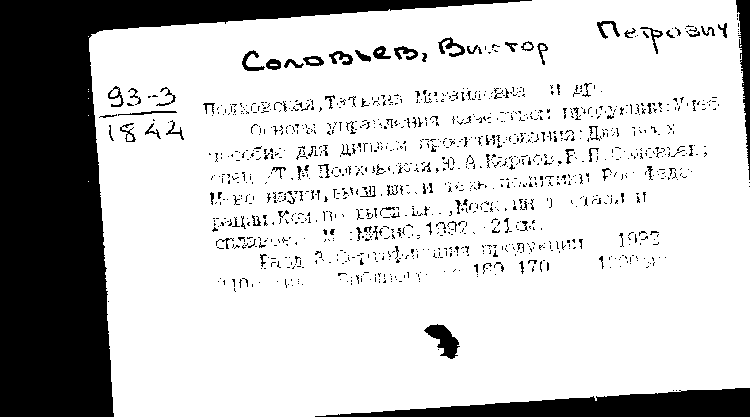 Соловьев, Виктор Петрович
93-3
1844
Полховская, Татьяна Михайловна и др.
Основы управления качеством продукции: Учеб
пособие для диплом проектирования: Для всех
спец /Т.М Полховская, Ю.А.Карпов, В.П.Соловьев;
М-во науки, высш.шк.и техн.политики Рос Феде-
рации.Ком.по высш.шк.,Моск.ин-т стали и
сплавов.- М :МИСиС, 1992.- 21см.
Разд 3.Сертификация продукции 1993
170